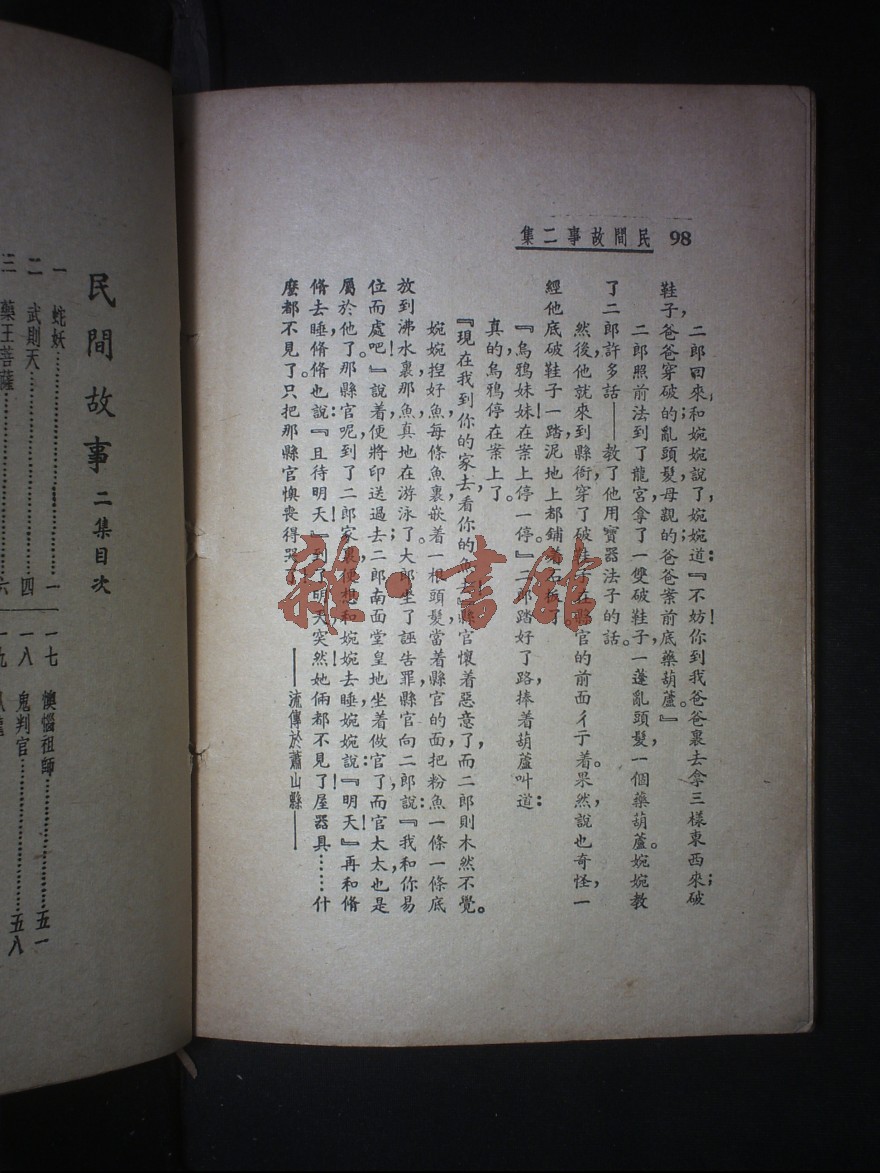 98 民間故事二集
二郎回來,和婉婉說了,婉婉道:『不妨!你到我爸爸裏去拿三樣東西來;破
鞋子,爸爸穿破的;亂頭髮,母親的;爸爸案前底藥葫蘆。』
二郎照前法到了龍宮,拿了一雙破鞋子,一蓬亂頭髮,一個藥葫蘆。婉婉教
了二郎許多話——教了他用寶器法子的話。
然後,他就來到縣衙,穿了破鞋子在縣官的前面彳亍着。果然,說也奇怪,一
經他底破鞋子一踏,泥地上都鋪着石板了。
『烏鴉妹妹!在案上停一停。』二郎踏好了路,捧着葫蘆叫道:
真的,烏鴉停在案上了。
『現在我到你的家去看你的魚去!』縣官懷着惡意了,而二郎則木然不覺。
婉婉揑好魚,每條魚裏嵌着一根頭髮,當着縣官的面,把粉魚一條一條底
放到沸水裏,那魚真地在游泳了。大郎坐了誣告罪,縣官向二郎說:『我和你易
位而處吧!』說着,便將印送過去,二郎南面堂皇地坐着做官了,而官太太也是
屬於他了。那縣官呢,到了二郎家裏,便想和婉婉去睡,婉婉說:『明天!』再和脩
脩去睡,脩脩也說:『且待明天!』到了明天,突然她倆都不見了,屋,器具……什
麼都不見了。只把那縣官懊喪得哭了!
——流傳於蕭山縣——
民間故事 二集目次
一 蛇妖……一
二 武則天……四
三 藥王菩薩……六
一七 懊惱祖師……五一
一八 鬼判官……五八
一九
雜·書館